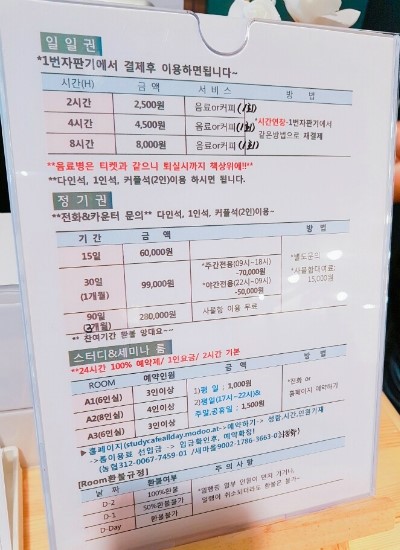 일일권
*1번자판기에서 결제후 이용하면됩니다~
시간(H) 금 액 서 비 스 방 법
2시간 2,500원 음료or커피(1회)
4시간 4,500원 음료or커피(1회) *시간연장-1번자판기에서
8시간 8,000원 음료or커피(1회) 같은방법으로 재결제
**음료병은 티켓과 같으니 퇴실시까지 책상위에!!**
**다인석, 1인석, 커플석(2인)이용 하시면 됩니다.
정기권
**전화&카운터 문의** 다인석, 1인석, 커플석(2인)이용~
기 간 금 액 방 법
15일 60,000원
30일 (1개월) 99,000원 *주간전용(09시~18시) -70,000원 *별도문의
*야간전용(22시~09시) -50,000원 *사물함대여료: 15,000원
90일 280,000원 사물함 이용 무료
** 잔여기간 환불 망대요~~
스터디&세미나 룸
**24시간 100% 예약제/ 1인요금/ 2시간 기본
ROOM 예약인원 금 액 방 법
A1(6인실) 3인이상 1)평 일 : 1,000원
A2(8인실) 4인이상 2)평일(17시~22시)& *전화 or
A3(6인실) 3인이상 주말,공휴일 : 1,500원 홈페이지 예약하기
▶홈페이지(studycafeallday.modoo.at->예약하기-> 성함,시간,인원기재
->이용료 선입금 -> 입금확인후, 예약확정!
(농협312-0067-7459-01 /새마을9002-1786-3663-0)
[Room환불규정]
날 짜 환불여부 주 의 사 항
D-2 100%환불 *일행중 일부 인원이 먼저 가거나,
D-1 50%환불불가 일행이 취소되더라도 환불은 불가~
D-Day 환불불가